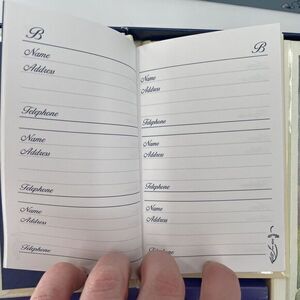 B
Name
Address
Telephone
Name
Address
Telephone
Name
Address
Telephone
B
Name
Address
Telephone
Name
Address
Telephone
Name
Address
Telephone